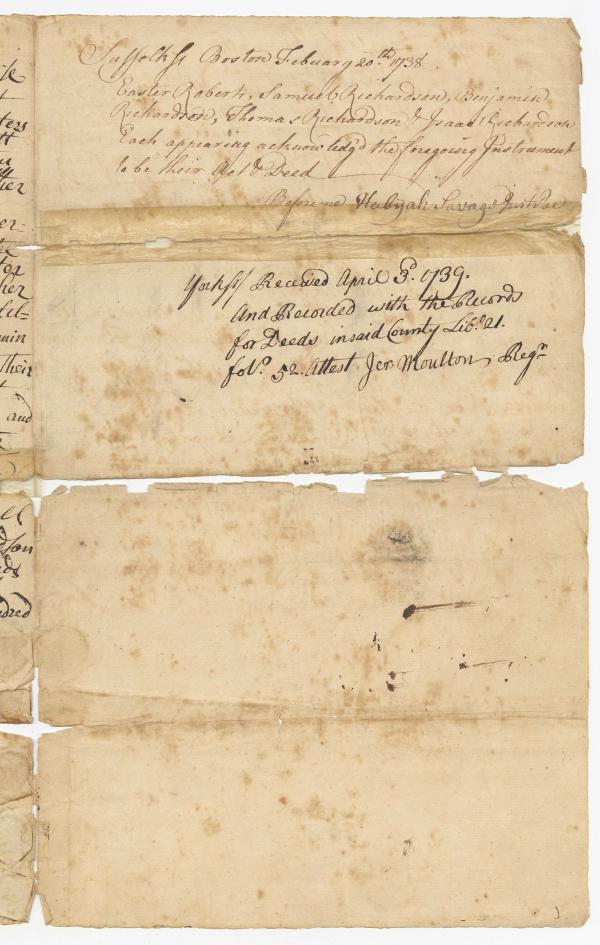 Suffolk ss Boston Febuary 20th. 1738
Easter Roberts, Samuel Richardson, Benjamin
Richardson, Thomas Richardson & Isaac Richardson
Each appearing acknowledg'd the foregoing Instrument
to be their Act & Deed
Before me Habijah Savage Just: Pac
York ss/ Received April 3d. 1739.
And Recorded with the Records
for Deeds in said County Libo. 21.
folo. 52. Attest Jer. Moulton, Regr
ters
ther
er-
ther
gain
their
and
son
dred